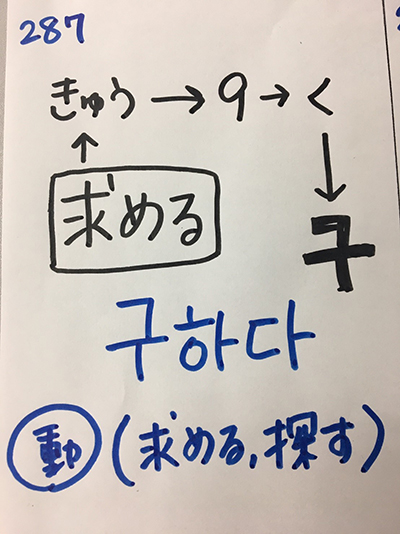 287
きゅう→9→く
↑ ↓
求める
구
구하다
動(求める,探す)